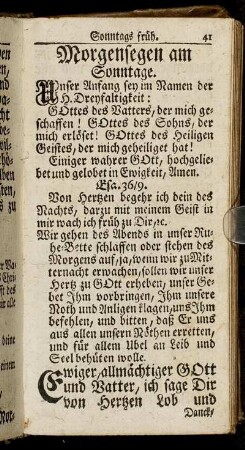 Sonntags früh. 41
Morgensegen am
Sonntage.
Unser Anfang sey im Namen der
H. Dreyfaltigkeit:
GOttes des Vatters, der mich ge-
schaffen! GOttes des Sohns, der
mich erlöset! GOttes des Heiligen
Geistes, der mich geheiliget hat!
Einiger wahrer GOtt, hochgelie-
bet und gelobet in Ewigkeit, Amen.
Esa. 36/9.
Von Hertzen begehr ich dein des
Nachts, darzu mit meinem Geist in
mir wach ich früh zu Dir, ꝛc.
Wir gehen des Abends in unser Ru-
he-Bette schlaffen oder stehen des
Morgens auf, ja, wenn wir zu Mit-
ternacht erwachen, sollen wir unser
Hertz zu GOtt erheben, unser Ge-
bet Jhm vorbringen, Jhm unsere
Noth und Anligen klagen, uns Jhm
befehlen, und bitten, daß Er uns
aus allen unsern Nöthen erretten,
und für allem Ubel an Leib und
Seel behüten wolle.
Ewiger, allmächtiger GOtt
und Vatter, ich sage Dir
von Hertzen Lob und
Danck,